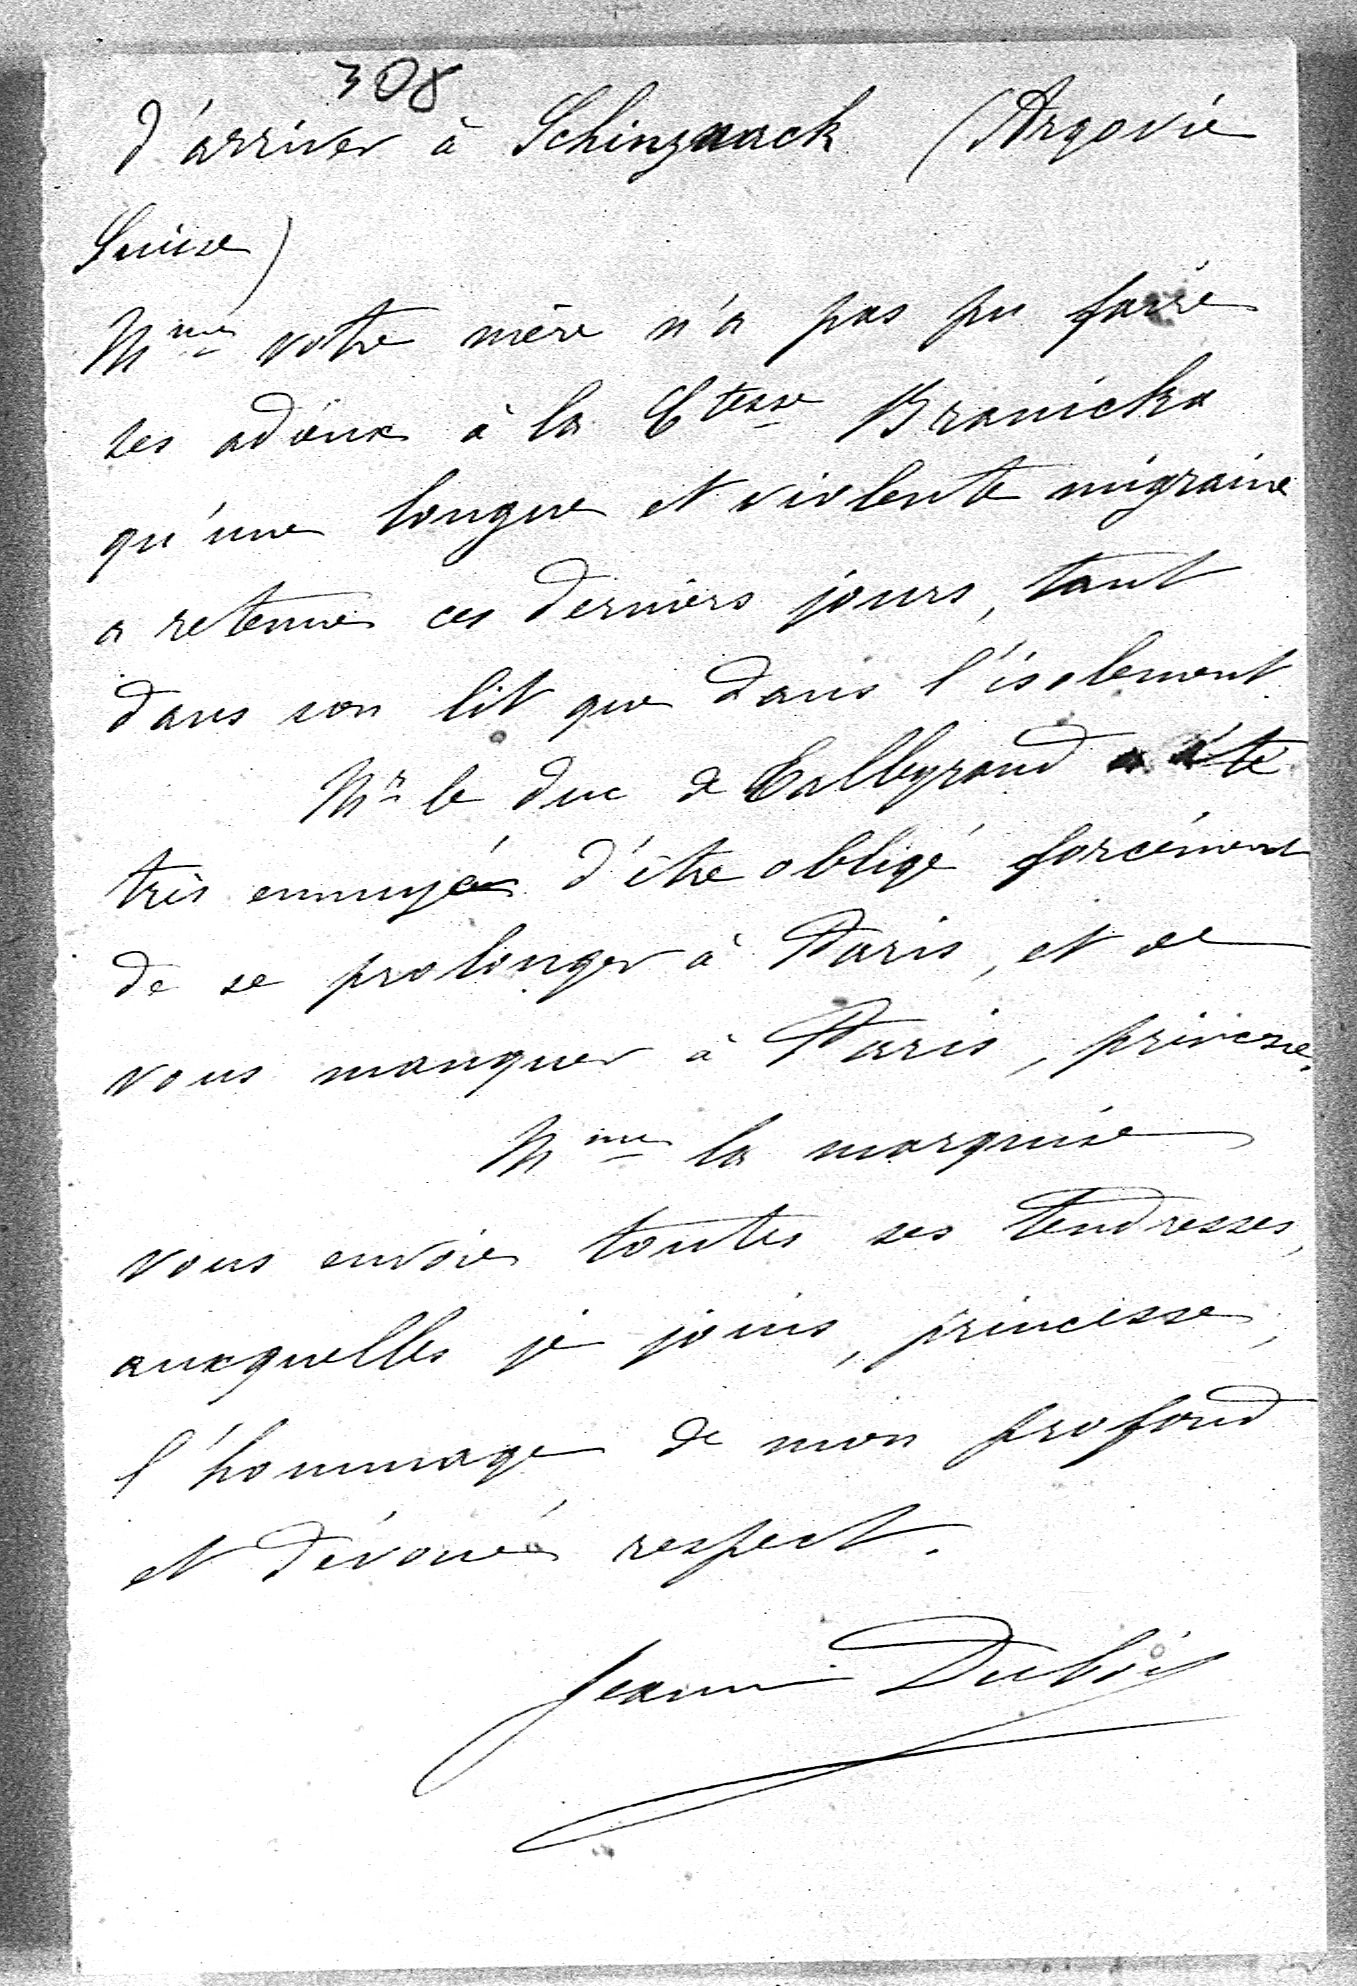 308
d'arriver à Schinznack (Argovie
Suisse)
Mme votre mère n'a pas pu faire
ses adieux à la Ctesse Branicka
qu'une longue et violente migraine
a retenue ces derniers jours, tant
dans son lit que dans l'isolement
Mr le duc de Talleyrand a été
très ennuyé d'être obligé forcément
de se prolonger à Paris, et de
vous manquer à Paris, princesse.
Mme la marquise
vous envoie toutes ses tendresses,
auxquelles je joins, princesse,
l'hommage de mon profond
et dévoué respect.
Jeanne Dubois